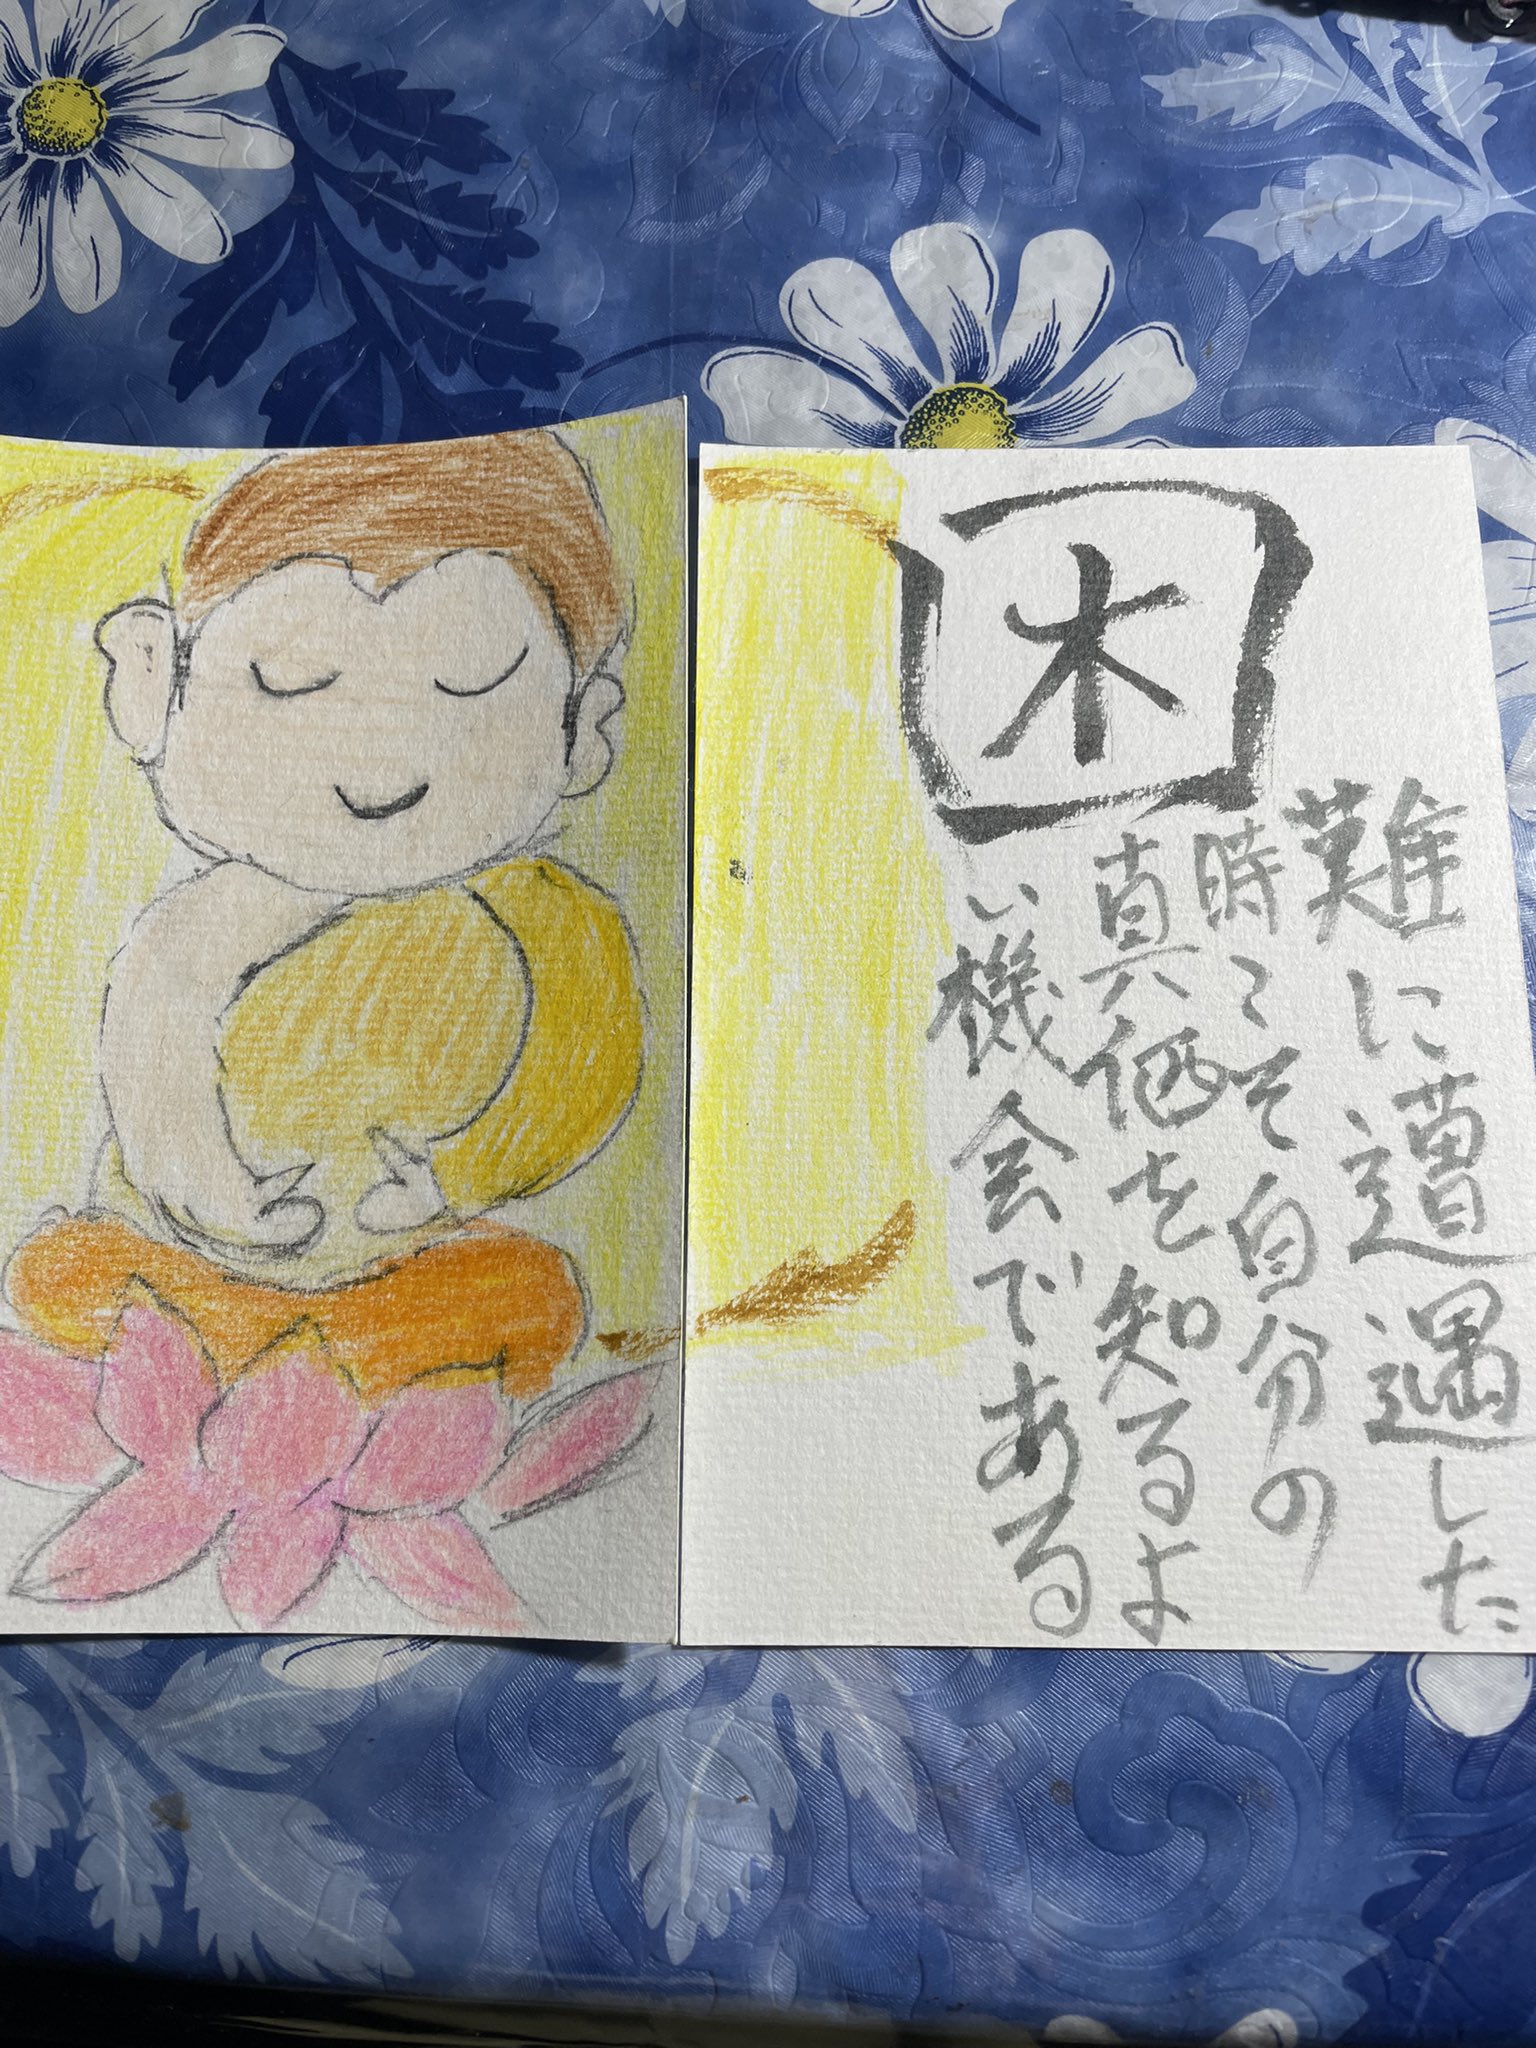 困
難に遭遇した
時こそ自分の
真価を知るよ
い機会である